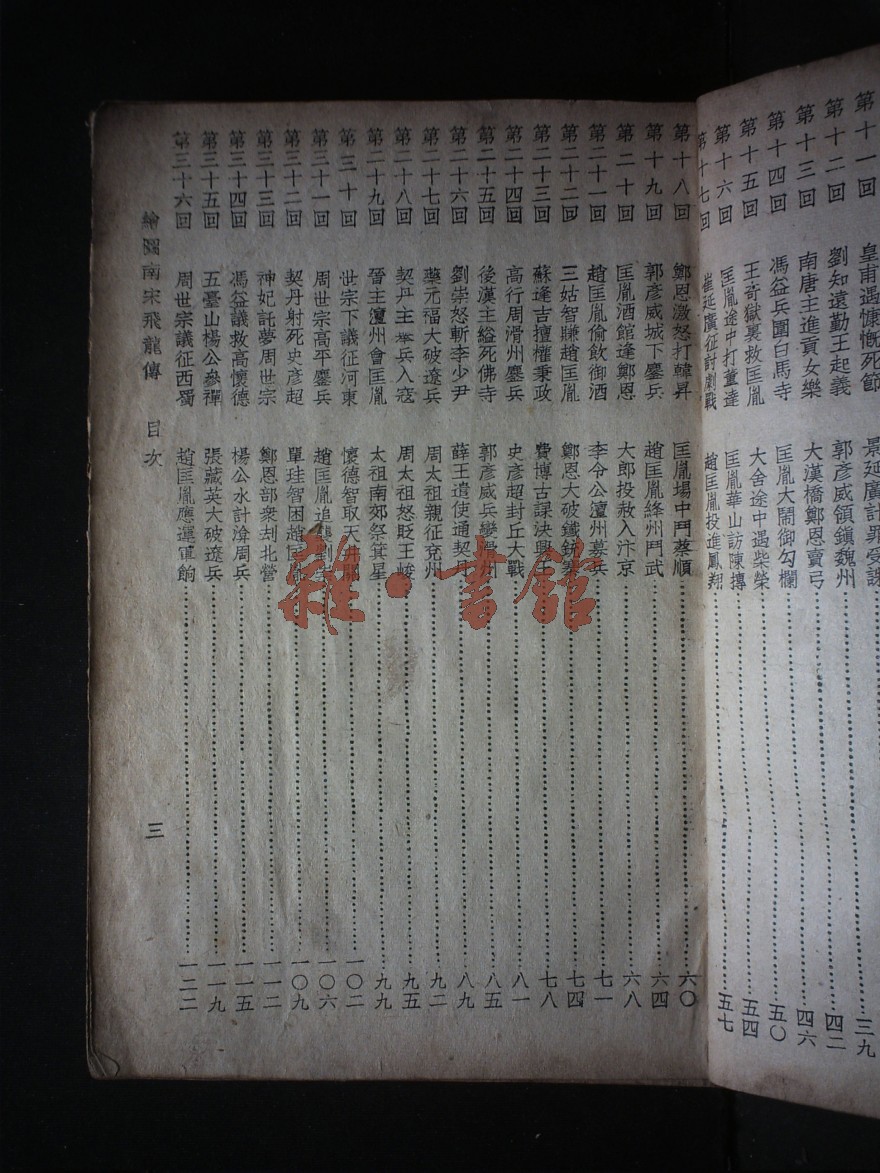 第十一回 皇甫遇慷慨死節 景延廣計罪受誅 三九
第十二回 劉知遠勤王起義 郭彥威領鎮魏州 四二
第十三回 南唐主進貢女樂 大漢橋鄭恩賣弓 四六
第十四回 馮益兵圍白馬寺 匡胤大鬧御勾欄 五〇
第十五回 王奇獄裏救匡胤 大舍途中遇柴榮 五四
第十六回 匡胤途中打董達 匡胤華山訪陳摶 五七
第十七回 崔延廣征討劇戰 趙匡胤投進鳳翔
第十八回 鄭恩激怒打韓昇 匡胤場中鬥蔡順 六〇
第十九回 郭彥威城下鏖兵 趙匡胤絳州鬥武 六四
第二十回 匡胤酒館逢鄭恩 大郎投赦入汴京 六八
第二十一回 趙匡胤偷飲御酒 李令公澶州募兵 七一
第二十二回 三姑智賺趙匡胤 鄭恩大破鐵 七四
第二十三回 蘇逢吉擅權秉政 費博古課決興王 七八
第二十四回 高行周滑州鏖兵 史彥超封丘大戰 八一
第二十五回 後漢主縊死佛寺 郭彥威兵變澶州 八五
第二十六回 劉崇怒斬李少尹 薛王遣使通契丹 八九
第二十七回 藥元福大破遼兵 周太祖親征兗州 九二
第二十八回 契丹主舉兵入寇 周太祖怒貶王峻 九五
第二十九回 晉主澶州會匡胤 太祖南郊祭箕星 九九
第三十回 世宗下議征河東 懷德智取天井關 一〇二
第三十一回 周世宗高平鏖兵 趙匡胤追襲劉崇 一〇六
第三十二回 契丹射死史彥超 單珪智困趙匡胤 一〇九
第三十三回 神妃託夢周世宗 鄭恩部衆刦北營 一一二
第三十四回 馮益議救高懷德 楊公水計渰周兵 一一五
第三十五回 五臺山楊公參禪 張藏英大破遼兵 一一九
第三十六回 周世宗議征西蜀 趙匡胤應運軍餉 一二二
繪圖南宋飛龍傳 目次 三
雜·書館